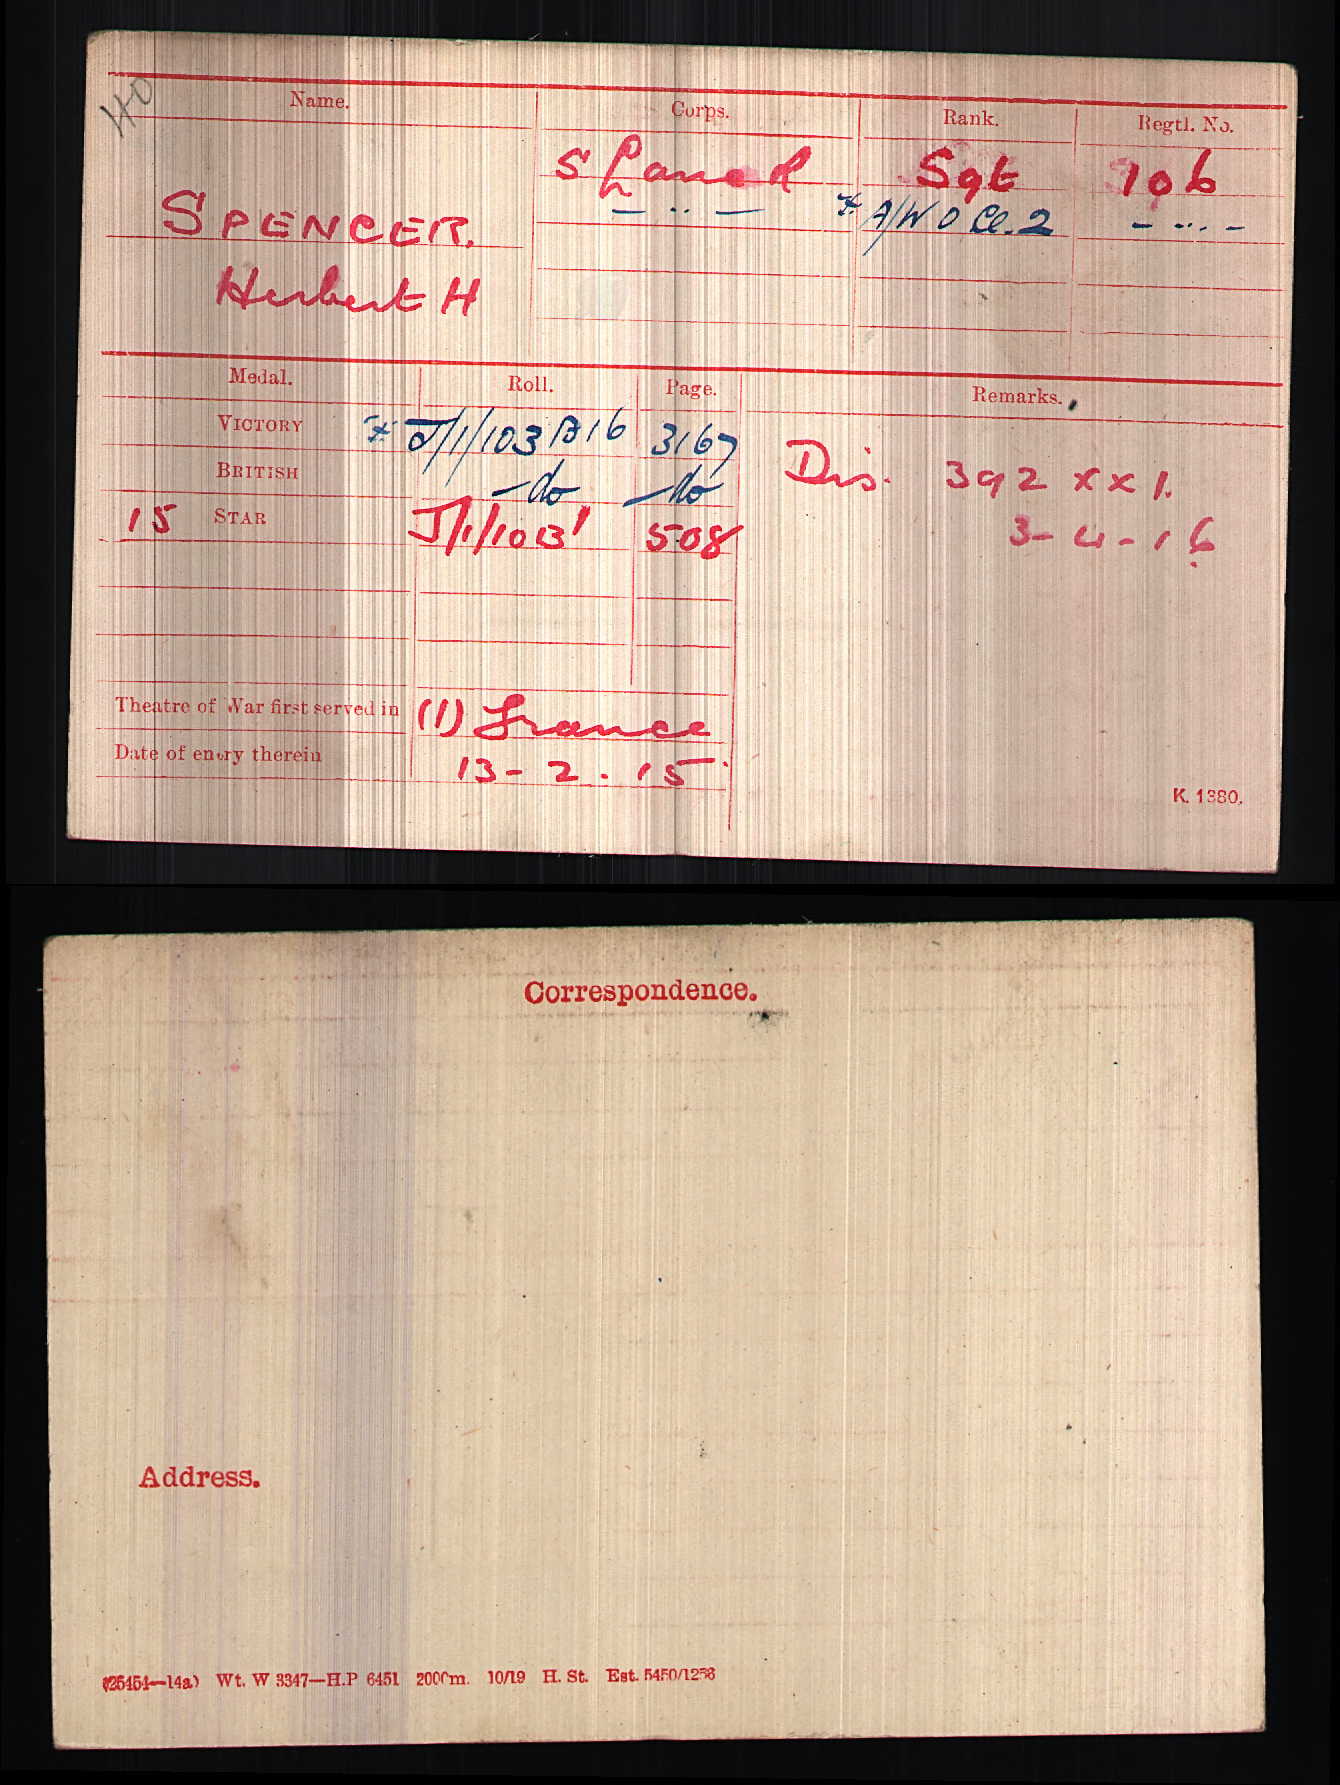 HO
Name.
Corps.
Rank.
Regtl. No.
S Lan R
Sgt
106
SPENCER.
— .. —
* A/W O Cl. 2
- ... -
Herbert H
Medal.
Roll.
Page.
Remarks.
VICTORY
* J/1/103 B16
3167
Dis. 392 xx 1.
BRITISH
- do
- do
3-4-16
15 STAR
J/1/10 B1
508
Theatre of War first served in
(1) France
Date of entry therein
13-2.15.
K. 1380.
Correspondence.
Address.
(25454—14a) Wt. W 3347—H.P 6451 2000m. 10/19 H. St. Est. 5450/1256